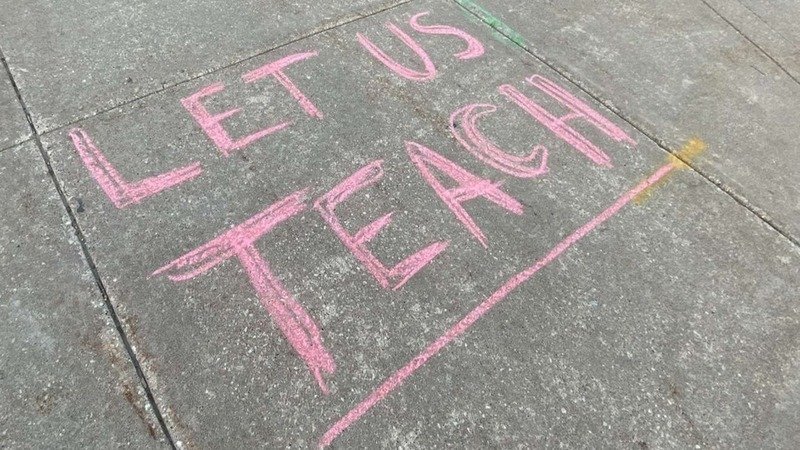 LET US
TEACH